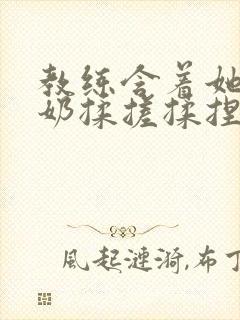 教练含着她
奶揉搓揉捏
風起漣漪,布丁